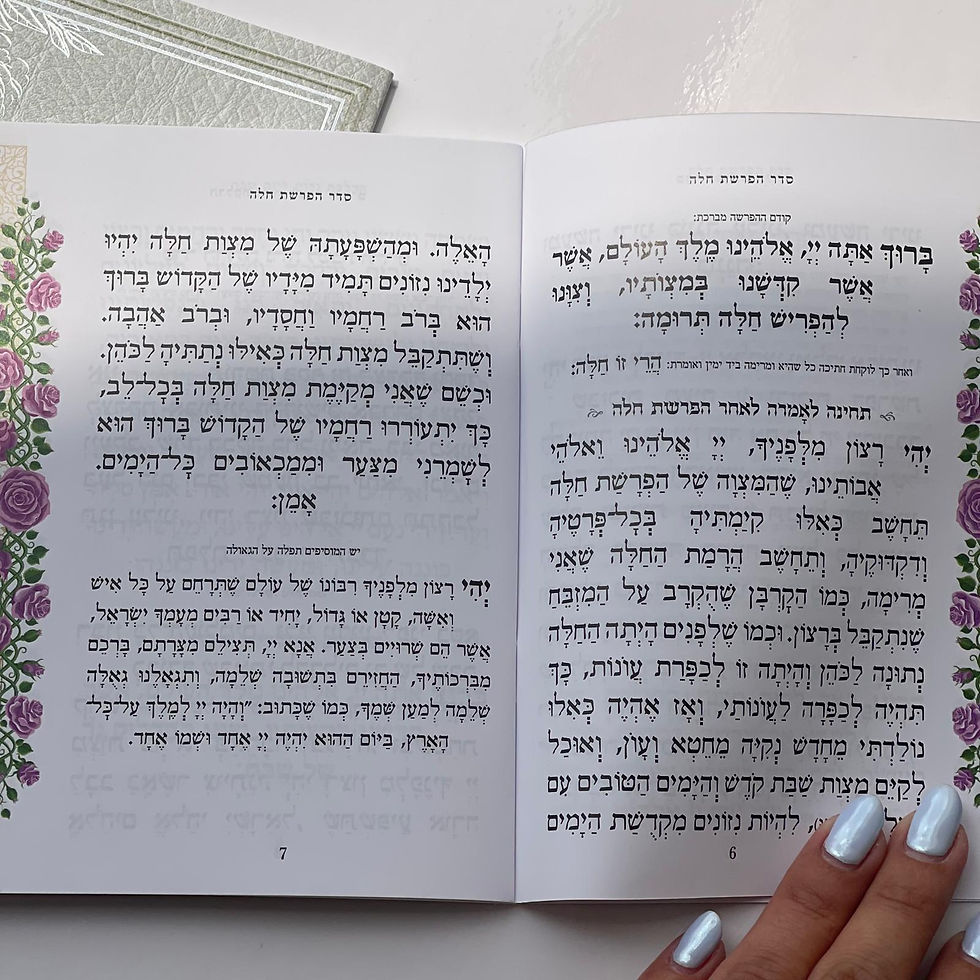 סדר הפרשת חלה
קודם ההפרשה מברכת:
בָּרוּךְ אַתָּה יְיָ, אֱלֹהֵינוּ מֶלֶךְ הָעוֹלָם, אֲשֶׁר
אֲשֶׁר קִדְּשָׁנוּ בְּמִצְוֹתָיו, וְצִוָּנוּ
לְהַפְרִישׁ חַלָּה תְּרוּמָה:
ואחר כך לוקחת חתיכה כל שהיא ומרימה ביד ימין ואומרת: הֲרֵי זוֹ חַלָּה:
תחינה לאָמרה לאחר הפרשת חלה
יְהִי רָצוֹן מִלְּפָנֶיךָ, יְיָ אֱלֹהֵינוּ וֵאלֹהֵי
אֲבוֹתֵינוּ, שֶׁהַמִּצְוָה שֶׁל הַפְרָשַׁת חַלָּה
תֵּחָשֵׁב כְּאִלּוּ קִיַּמְתִּיהָ בְּכָל־פְּרָטֶיהָ
וְדִקְדּוּקֶיהָ, וְתֵחָשֵׁב הֲרָמַת הַחַלָּה שֶׁאֲנִי
מְרִימָה, כְּמוֹ הַקָּרְבָּן שֶׁהֻקְרַב עַל הַמִּזְבֵּחַ
שֶׁנִּתְקַבֵּל בְּרָצוֹן. וּכְמוֹ שֶׁלְּפָנִים הָיְתָה הַחַלָּה
נְתוּנָה לַכֹּהֵן וְהָיְתָה זוֹ לְכַפָּרַת עֲוֹנוֹת, כָּךְ
תִּהְיֶה לְכַפָּרָה לַעֲוֹנוֹתַי, וְאָז אֶהְיֶה כְּאִלּוּ
נוֹלַדְתִּי מֵחָדָשׁ נְקִיָּה מֵחֵטְא וְעָוֹן, וְאוּכַל
לְקַיֵּם מִצְוַת שַׁבַּת קֹדֶשׁ וְהַיָּמִים הַטּוֹבִים עִם
לִהְיוֹת נִזּוֹנִים מִקְּדֻשַּׁת הַיָּמִים
6
סדר הפרשת חלה
הָאֵלֶּה. וּמֵהַשְׁפָּעָתָהּ שֶׁל מִצְוַת חַלָּה יִהְיוּ
יְלָדֵינוּ נִזּוֹנִים תָּמִיד מִיָּדָיו שֶׁל הַקָּדוֹשׁ בָּרוּךְ
הוּא בְּרֹב רַחֲמָיו וַחֲסָדָיו, וּבְרֹב אַהֲבָה.
וְשֶׁתִּתְקַבֵּל מִצְוַת חַלָּה כְּאִילוּ נְתַתִּיהָ לַכֹּהֵן.
וּכְשֵׁם שֶׁאֲנִי מְקַיֶּמֶת מִצְוַת חַלָּה בְּכָל־לֵב,
כָּךְ יִתְעוֹרְרוּ רַחֲמָיו שֶׁל הַקָּדוֹשׁ בָּרוּךְ הוּא
לְשָׁמְרֵנִי מִצַּעַר וּמִמַּכְאוֹבִים כָּל־הַיָּמִים.
אָמֵן:
יש המוסיפים תפלה על הגאולה
יְהִי רָצוֹן מִלְּפָנֶיךָ רִבּוֹנוֹ שֶׁל עוֹלָם שֶׁתְּרַחֵם עַל כָּל אִישׁ
וְאִשָּׁה, קָטָן אוֹ גָּדוֹל, יָחִיד אוֹ רַבִּים מֵעַמְּךָ יִשְׂרָאֵל,
אֲשֶׁר הֵם שְׁרוּיִים בְּצַעַר. אָנָּא יְיָ, תַּצִּילֵם מִצָּרָתָם, בָּרְכֵם
מִבִּרְכוֹתֶיךָ, הַחֲזִירֵם בִּתְשׁוּבָה שְׁלֵמָה, וְתִגְאָלֵנוּ גְּאֻלָּה
שְׁלֵמָה לְמַעַן שְׁמֶךָ, כְּמוֹ שֶׁכָּתוּב: ״וְהָיָה יְיָ לְמֶלֶךְ עַל־כָּל־
הָאָרֶץ, בַּיּוֹם הַהוּא יִהְיֶה יְיָ אֶחָד וּשְׁמוֹ אֶחָד.
7